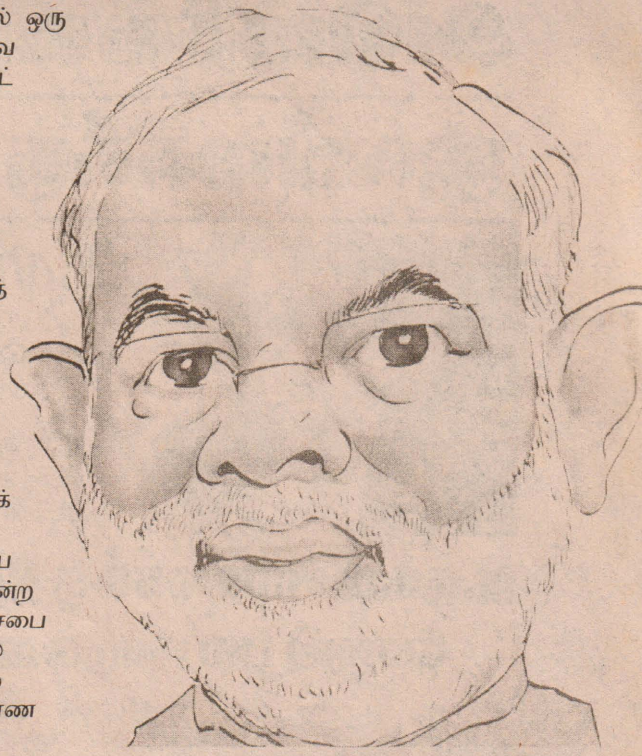 ல் ஒரு
வ
ட்
த்
க்
ய
ன்ற
சபை
ண